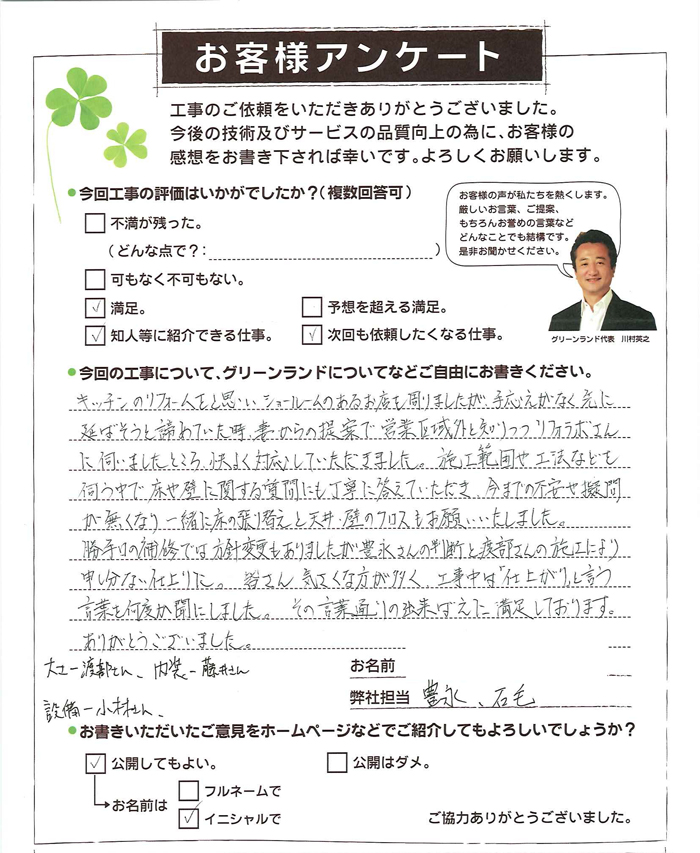 お客様アンケート
工事のご依頼をいただきありがとうございました。
今後の技術及びサービスの品質向上の為に、お客様の
感想をお書き下されば幸いです。よろしくお願いします。
●今回工事の評価はいかがでしたか?(複数回答可)
不満が残った。
(どんな点で?: )
可もなく不可もない。
満足。
予想を超える満足。
知人等に紹介できる仕事。
次回も依頼したくなる仕事。
お客様の声が私たちを熱くします。
厳しいお言葉、ご提案、
もちろんお誉めの言葉など
どんなことでも結構です。
是非お聞かせください。
グリーンランド代表 川村英之
●今回の工事について、グリーンランドについてなどご自由にお書きください。
キッチンのリフォームをと思い ショールームのあるお店も周りましたが、手応えがなく先に
延ばそうと諦めていた時、妻からの提案で営業区域外と知りつつリフォラボさん
に伺いましたところ、快よく対応していただきました。施工範囲や工法なども
伺う中で床や壁に関する質問にも丁寧に答えていただき、今までの不安や疑問
が無くなり一緒に床の張り替えと天井・壁のクロスもお願いいたしました。
勝手口の補修では方針変更もありましたが豊永さんの判断と渡部さんの施工により
申し分ない仕上りに。皆さん気さくな方が多く、工事中は「仕上がり」と言う
言葉を何度か聞にしました。その言葉通りの出来ばえに満足しております。
ありがとうございました。
大工ー渡部さん、内装ー藤井さん
設備ー小林さん、
お名前
弊社担当 豊永、石毛
●お書きいただいたご意見をホームページなどでご紹介してもよろしいでしょうか?
公開してもよい。
公開はダメ。
お名前は
フルネームで
イニシャルで
ご協力ありがとうございました。